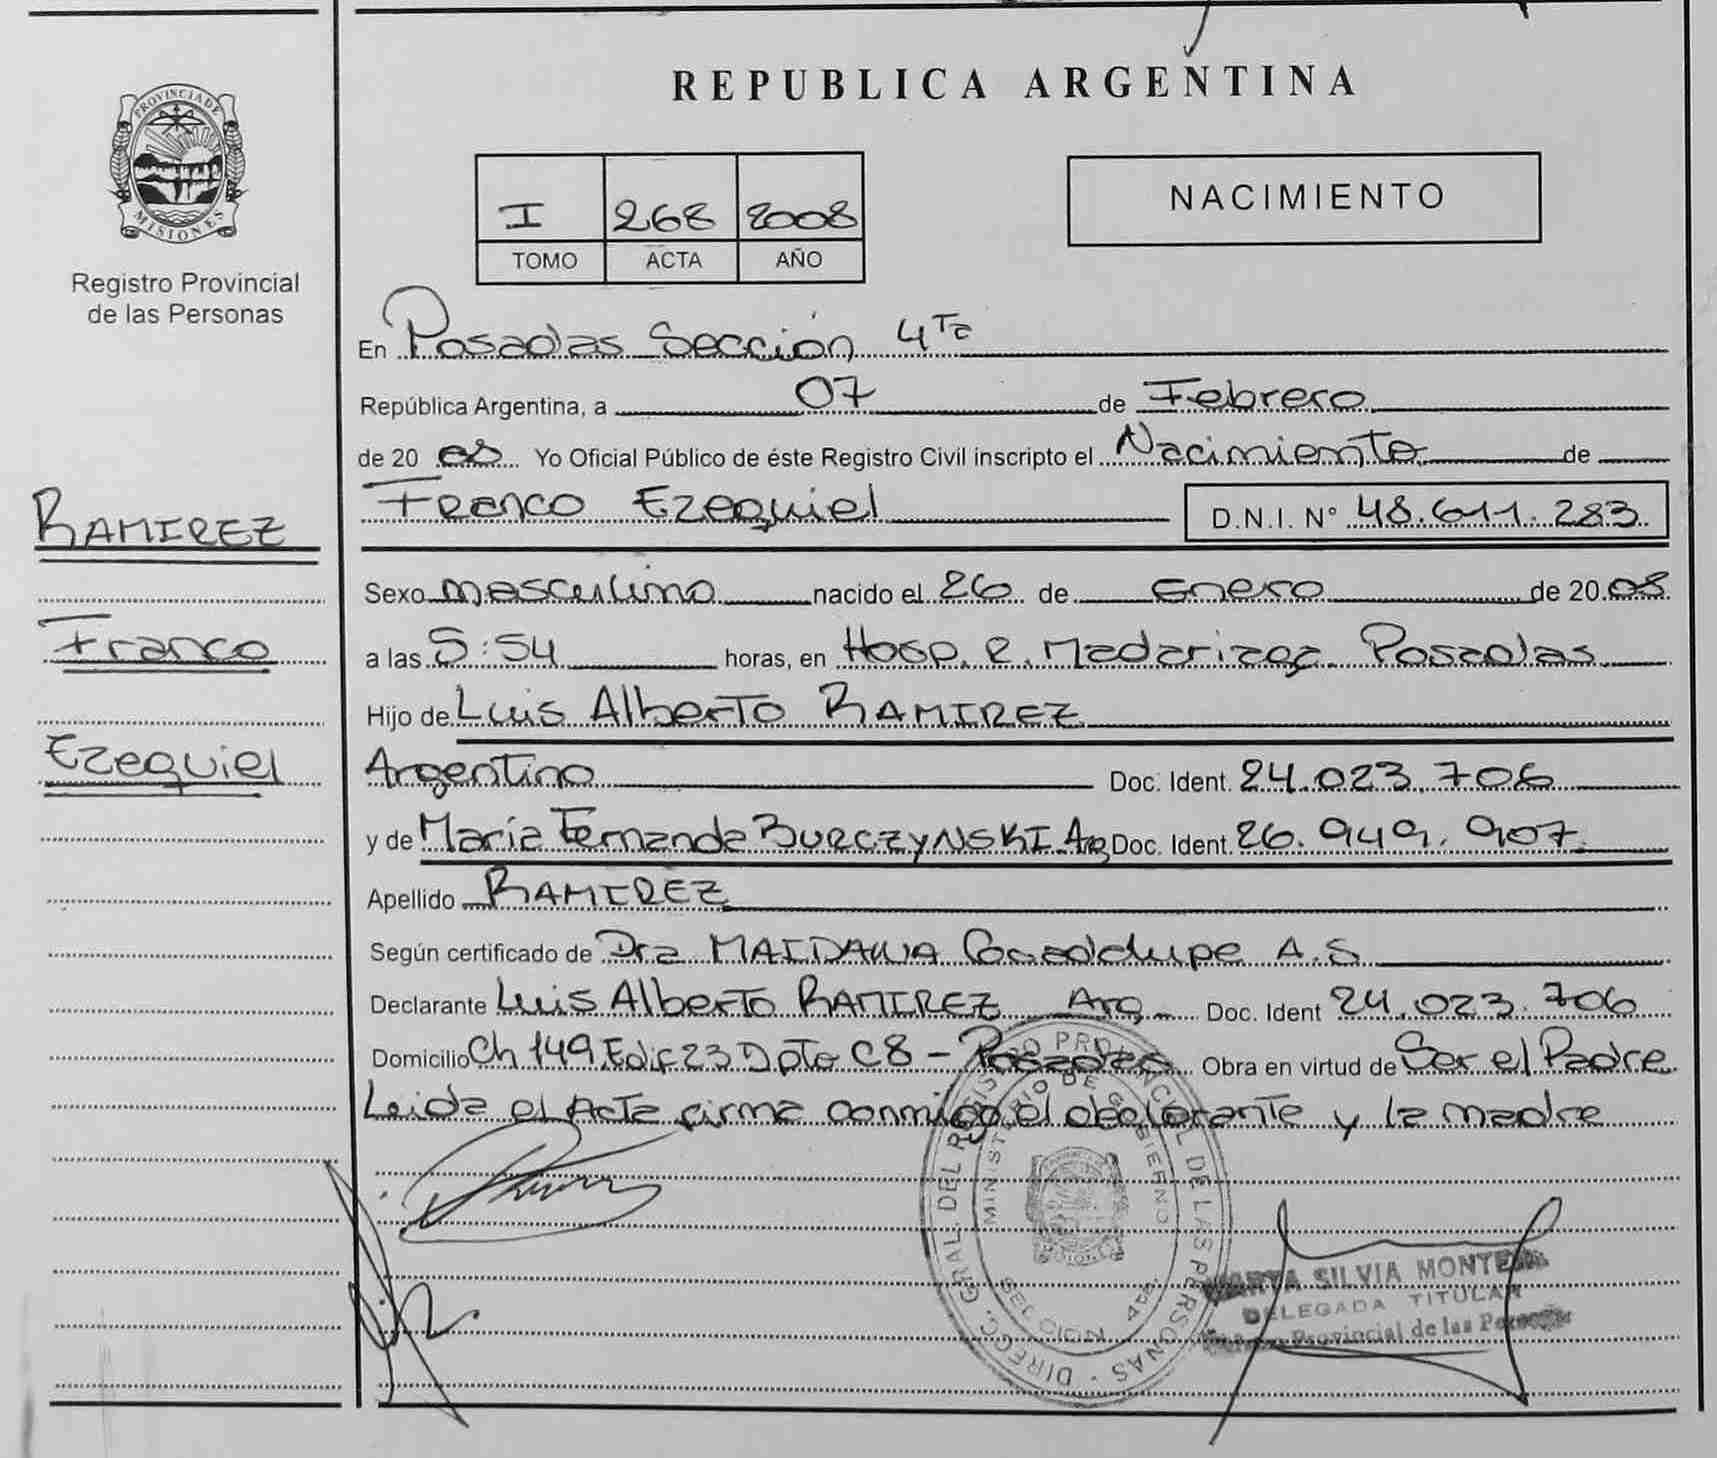 PROVINCIA DE
MISIONES
Registro Provincial
de las Personas
RAMIREZ
Franco
Ezequiel
REPUBLICA ARGENTINA
I 268 2008
TOMO ACTA AÑO
NACIMIENTO
En Posadas Sección 4Ta
República Argentina, a 07 de Febrero
de 20 08 Yo Oficial Público de éste Registro Civil inscripto el Nacimiento de
Franco Ezequiel D.N.I. N° 48.611.283
Sexo masculino nacido el 26 de Enero de 20 08
a las 5:54 horas, en Hosp. R. Madariaga Posadas
Hijo de Luis Alberto RAMIREZ
Argentino Doc. Ident. 24.023.706
y de María Fernanda BURCZYNSKI Arg Doc. Ident. 26.949.907
Apellido RAMIREZ
Según certificado de Dra MAIDANA Guadalupe A.S
Declarante Luis Alberto RAMIREZ Arg. Doc. Ident 24.023.706
Domicilio Ch 149 Edif 23 Dpto C8 - Posadas Obra en virtud de Ser el Padre
Leida el Acta firma conmigo el declarante y la madre
DIRECC. GRAL. DEL REGISTRO PROVINCIAL DE LAS PERSONAS
MINISTERIO DE GOBIERNO
SILVIA
DELEGADA TITULAR
Provincial de las Personas